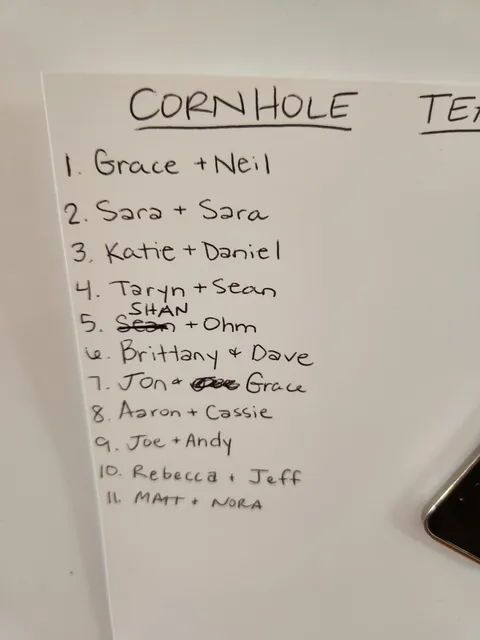 CORNHOLE TEA
1. Grace + Neil
2. Sara + Sara
3. Katie + Daniel
4. Taryn + Sean
SHAN
5. Sean + Ohm
6. Brittany & Dave
7. Jon & Grace
8. Aaron + Cassie
9. Joe + Andy
10. Rebecca + Jeff
11. MATT + NORA